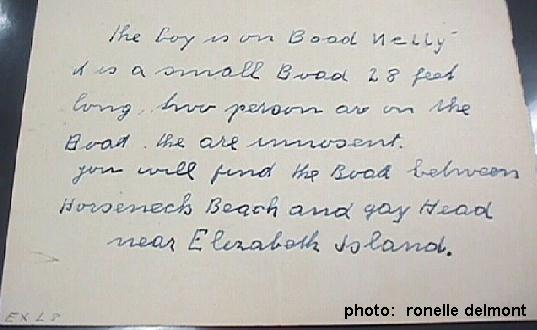 the boy is on Boad Nelly
it is a small Boad 28 feet
long, two person are on the
Boad. the are innosent.
you will find the Boad between
Horseneck Beach and gay Head
near Elizabeth Island.
EX L8
photo: ronelle delmont